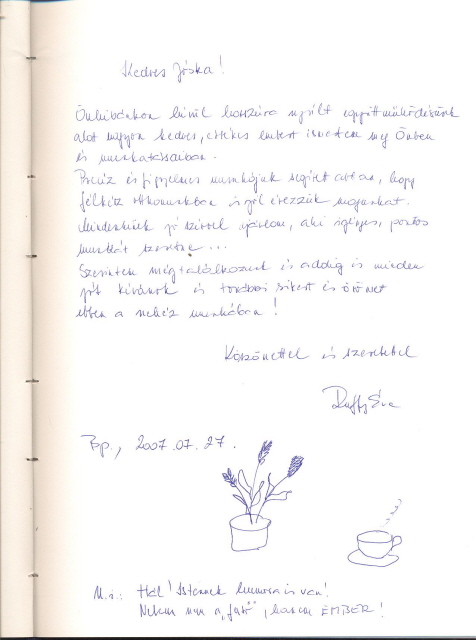 Kedves Jóska!
Önhibánkon kívül hosszúra nyúlt együttműködésünk
alatt nagyon kedves, értékes embert ismertem meg Önben
és munkatársaiban.
Precíz és figyelmes munkájuk segített abban, hogy
félkész otthonunkban is jól érezzük magunkat.
Mindenkinek jó szívvel ajánlom, aki igényes, pontos
munkát szeretne...
Szerintem még találkozunk és addig is minden
jót kívánok és további sikert és örömet
ebben a nehéz munkában!
Köszönettel és szeretettel
Éva
Bp., 2007.07.27.
U.i.: Hál' Istennek humora is van!
Nekem nem a „ ”, hanem EMBER!